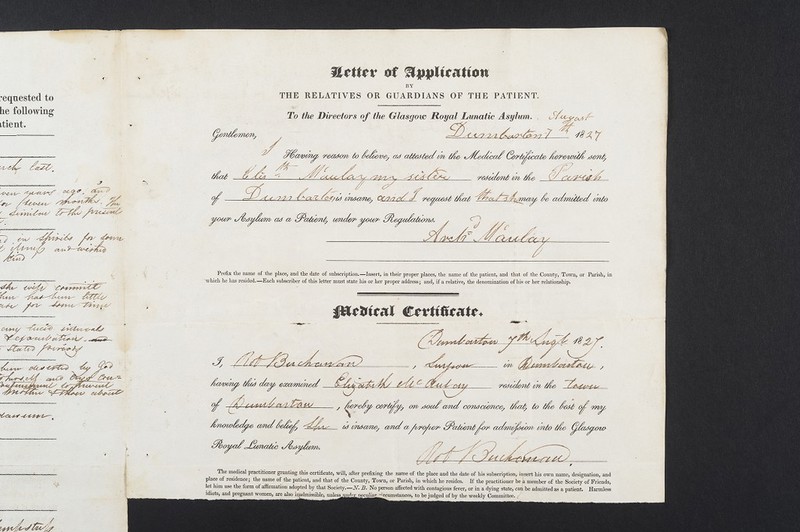 requested to
he following
tient.
Letter of Application
BY
THE RELATIVES OR GUARDIANS OF THE PATIENT.
To the Directors of the Glasgow Royal Lunatic Asylum.
Gentlemen,
Dumbarton 7th August 1827
I Having reason to believe, as attested in the Medical Certificate herewith sent,
that Elizth Maulay my sister resident in the Parish
of Dumbarton is insane, and I request that she may be admitted into
your Asylum as a Patient, under your Regulations.
Archd Maulay
Prefix the name of the place, and the date of subscription.—Insert, in their proper places, the name of the patient, and that of the County, Town, or Parish, in
which he has resided.—Each subscriber of this letter must state his or her proper address; and, if a relative, the denomination of his or her relationship.
Medical Certificate.
Dumbarton 7th Augt 1827.
I, Rot Buchanan, Surgeon in Dumbarton,
having this day examined Elizabeth McAulay resident in the Town
of Dumbarton, hereby certify, on soul and conscience, that, to the best of my
knowledge and belief, she is insane, and a proper Patient for admission into the Glasgow
Royal Lunatic Asylum.
Rot Buchanan
The medical practitioner granting this certificate, will, after prefixing the name of the place and the date of his subscription, insert his own name, designation, and
place of residence; the name of the patient, and that of the County, Town, or Parish, in which he resides. If the practitioner be a member of the Society of Friends,
let him use the form of affirmation adopted by that Society.—N. B. No person affected with contagious fever, or in a dying state, can be admitted as a patient. Harmless
idiots, and pregnant women, are also inadmissible, unless under peculiar circumstances, to be judged of by the weekly Committee.